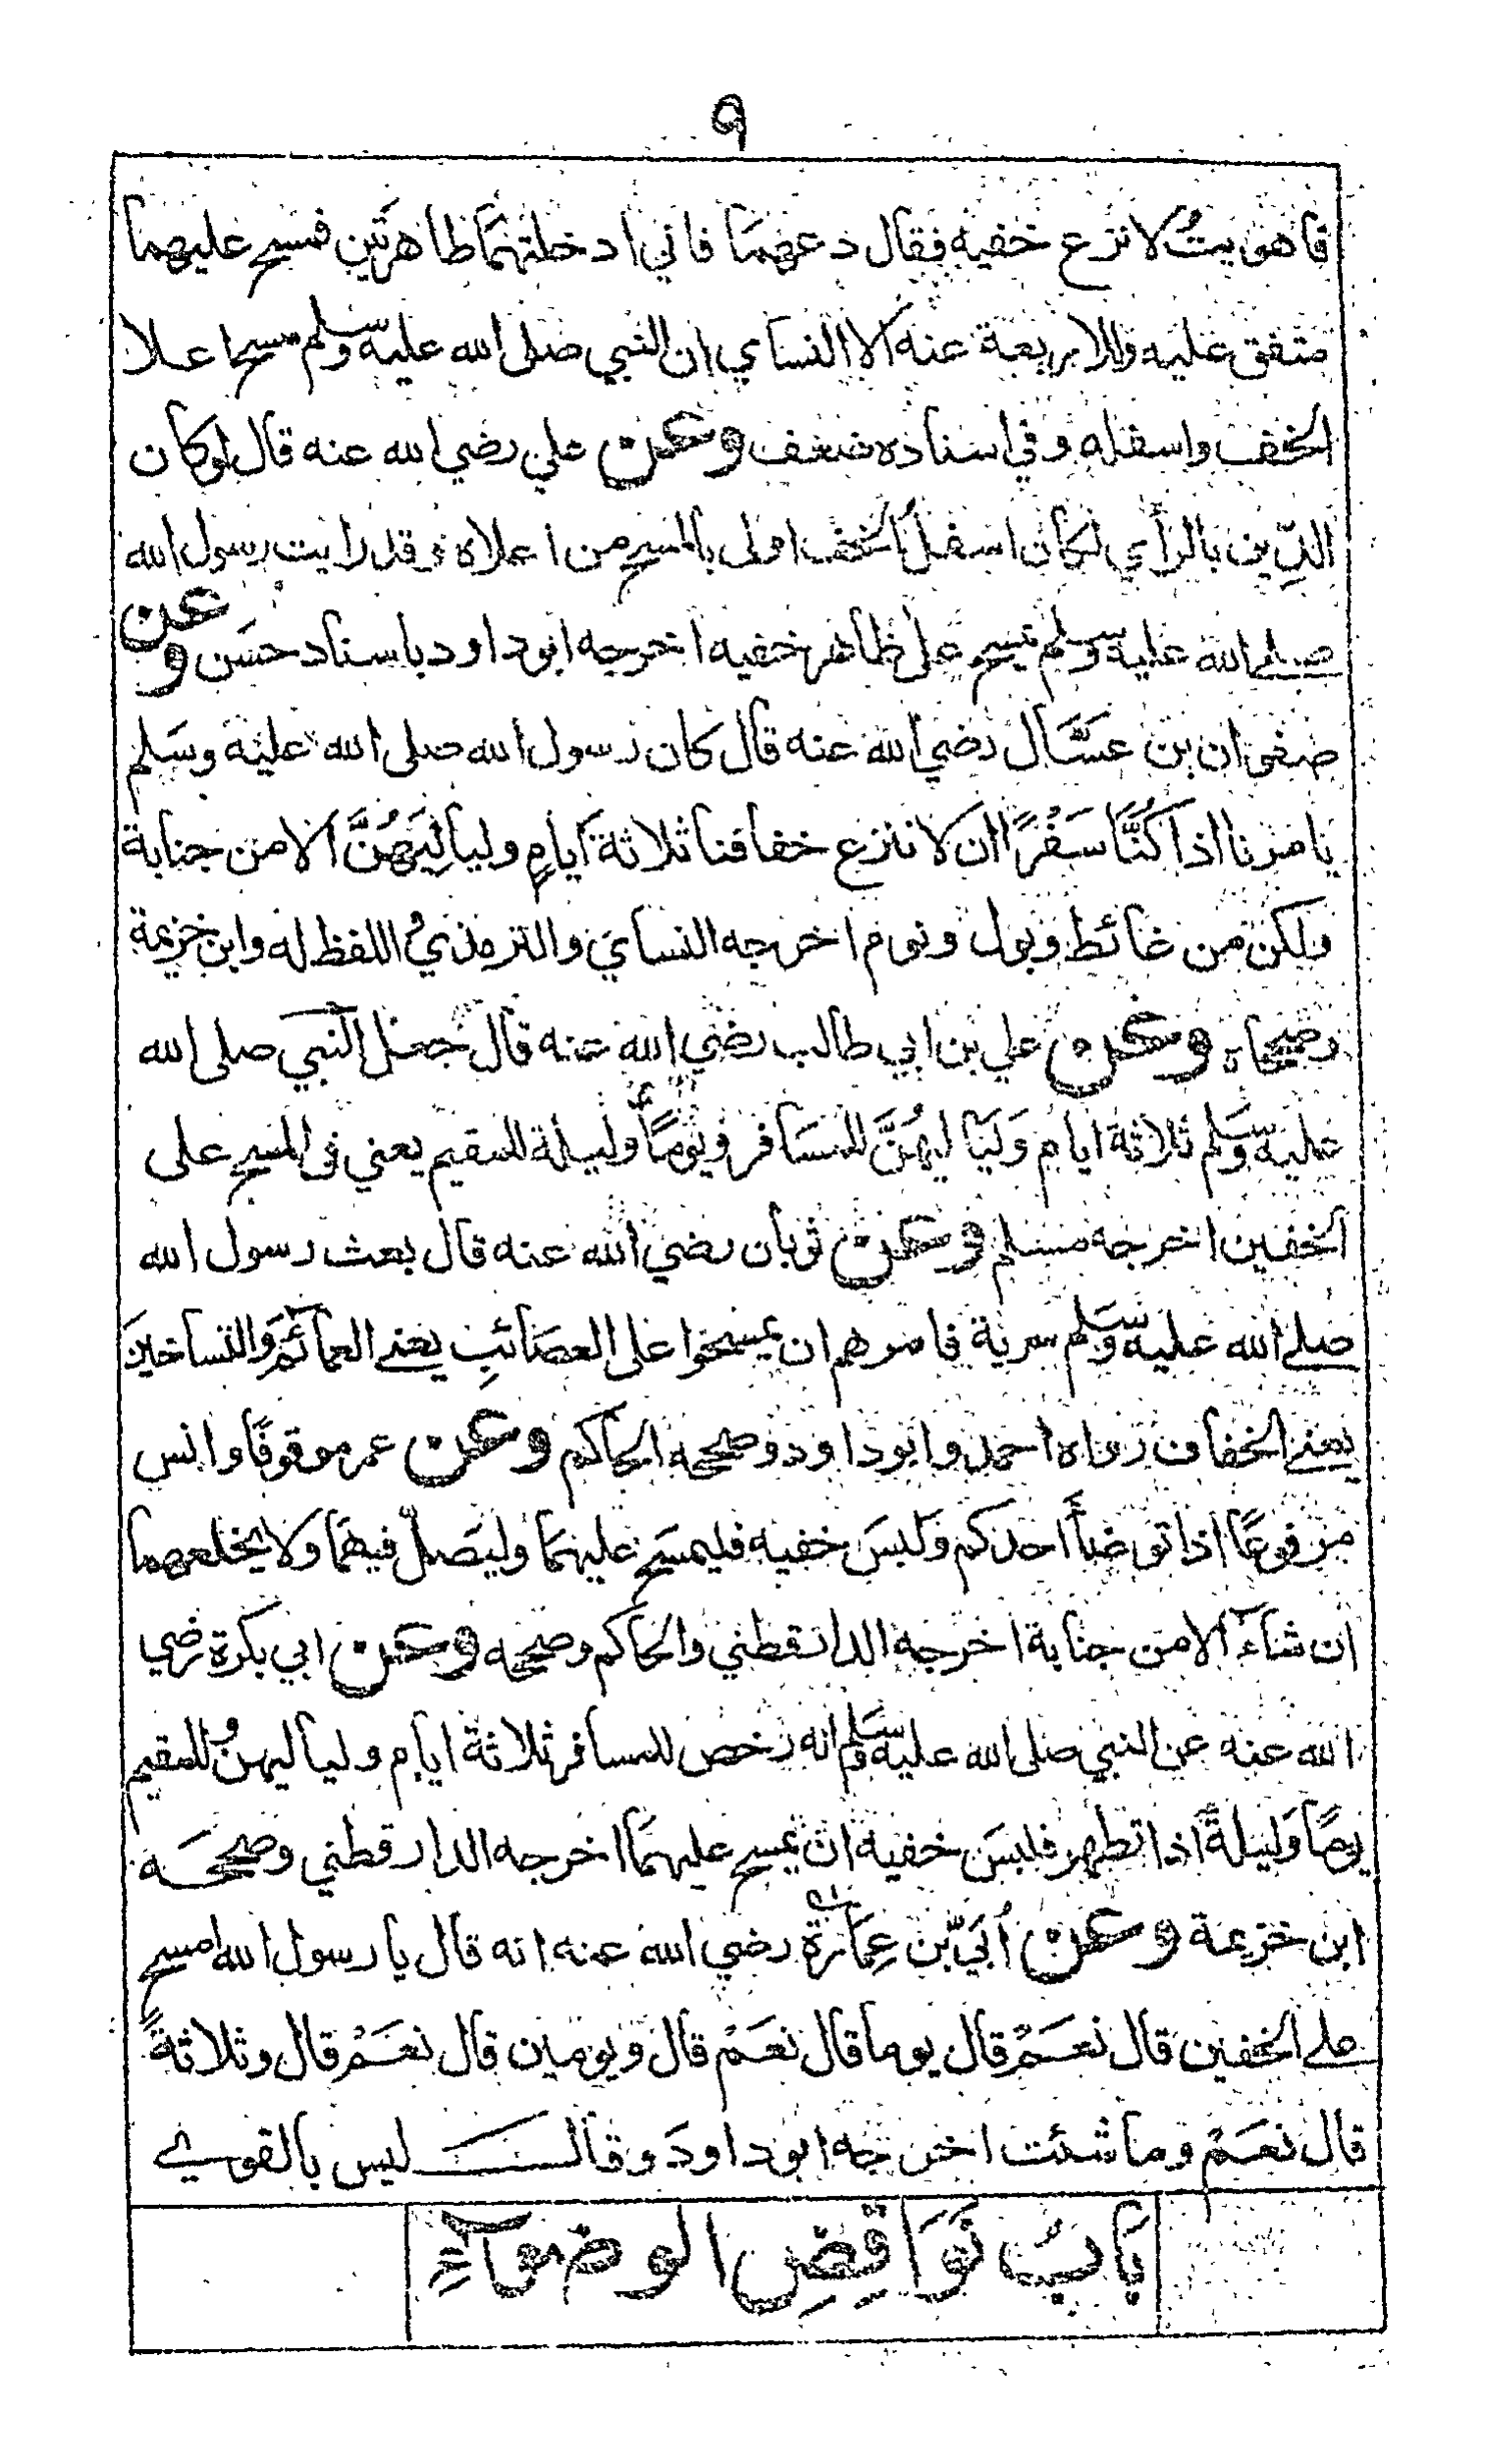 ٩
فاهويتُ لانزع خفيه فقال دعهما فاني ادخلتهما طاهرتين فمسح عليهما
متفق عليه وللاربعة عنه الا النساي ان النبي صلى الله عليه وسلم مسح اعلا
الخف واسفله وفي اسناده ضعف وعن علي رضي الله عنه قال لو كان
الدِّين بالرأي لكان اسفل الخف اولى بالمسح من اعلاه وقد رايت رسول الله
صلى الله عليه وسلم يمسح على ظاهر خفيه اخرجه ابو داود باسناد حسَن وعن
صفوان بن عسَّال رضي الله عنه قال كان رسول الله صلى الله عليه وسَلم
يامرنا اذا كنَّا سَفْرًا ان لا ننزع خفافنا ثلاثة ايامٍ ولياليَهُنَّ الا من جنابة
ولكن من غائط وبول ونوم اخرجه النساي والترمذي واللفظ له وابن خزيمة
وصححاه وعن علي بن ابي طالب رضي الله عنه قال جعل النبي صلى الله
عليه وسَلم ثلاثة ايام وَلياليهُنَّ للمسَافر ويومًا وليلة للمقيم يعني في المسح على
الخفين اخرجه مسلم وعن ثوبان رضي الله عنه قال بعث رسول الله
صلى الله عليه وسَلم سرية فامرهم ان يمسحوا على العصَائبِ يعني العمائم وَالتساخينَ
يعني الخفاف رواه احمد وابو داود وصححه الحاكم وعن عمر موقوفًا وانس
مرفوعًا اذا توضأ احدكم وَلبسَ خفيه فليمسَح عليهما وليُصَلّ فيهما ولا يخلعهما
ان شاءَ الا من جنابة اخرجه الدارقطني والحاكم وصححه وعن ابي بكرة رضي
الله عنه عن النبي صلى الله عليه وسَلم انه رخص للمسافر ثلاثة ايام ولياليهن وللمقيم
يومًا وَليلةً اذا تطهر فلبسَ خفيه ان يمسح عليهمَا اخرجه الدارقطني وصححه
ابن خزيمة وعن أُبَيّ بن عِمَارَة رضي الله عنه انه قال يا رسول الله امسح
على الخفين قال نعَمْ قال يوما قال نعَمْ قال ويومين قال نعَمْ قال وثلاثةً
قال نعَمْ وما شئت اخرجه ابو داودَ وقال ليس بالقوي
بَابُ نَوَاقِضِ الوضوءِ